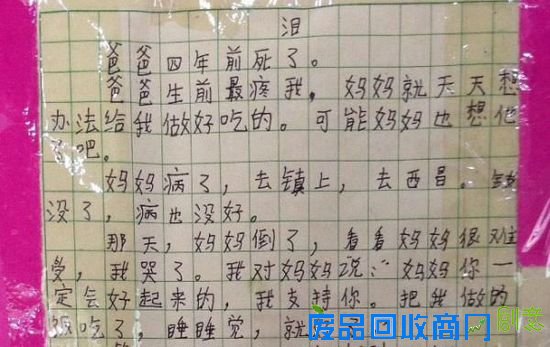 泪
爸爸四年前死了。
爸爸生前最疼我，妈妈就天天想
办法给我做好吃的。可能妈妈也想他
了吧。
妈妈病了，去镇上，去西昌。钱
没了，病也没好。
那天，妈妈倒了，看看妈妈很难
受，我哭了。我对妈妈说：“妈妈你一
定会好起来的，我支持你。把我做的
饭吃了，睡睡觉，就
废品回收商网